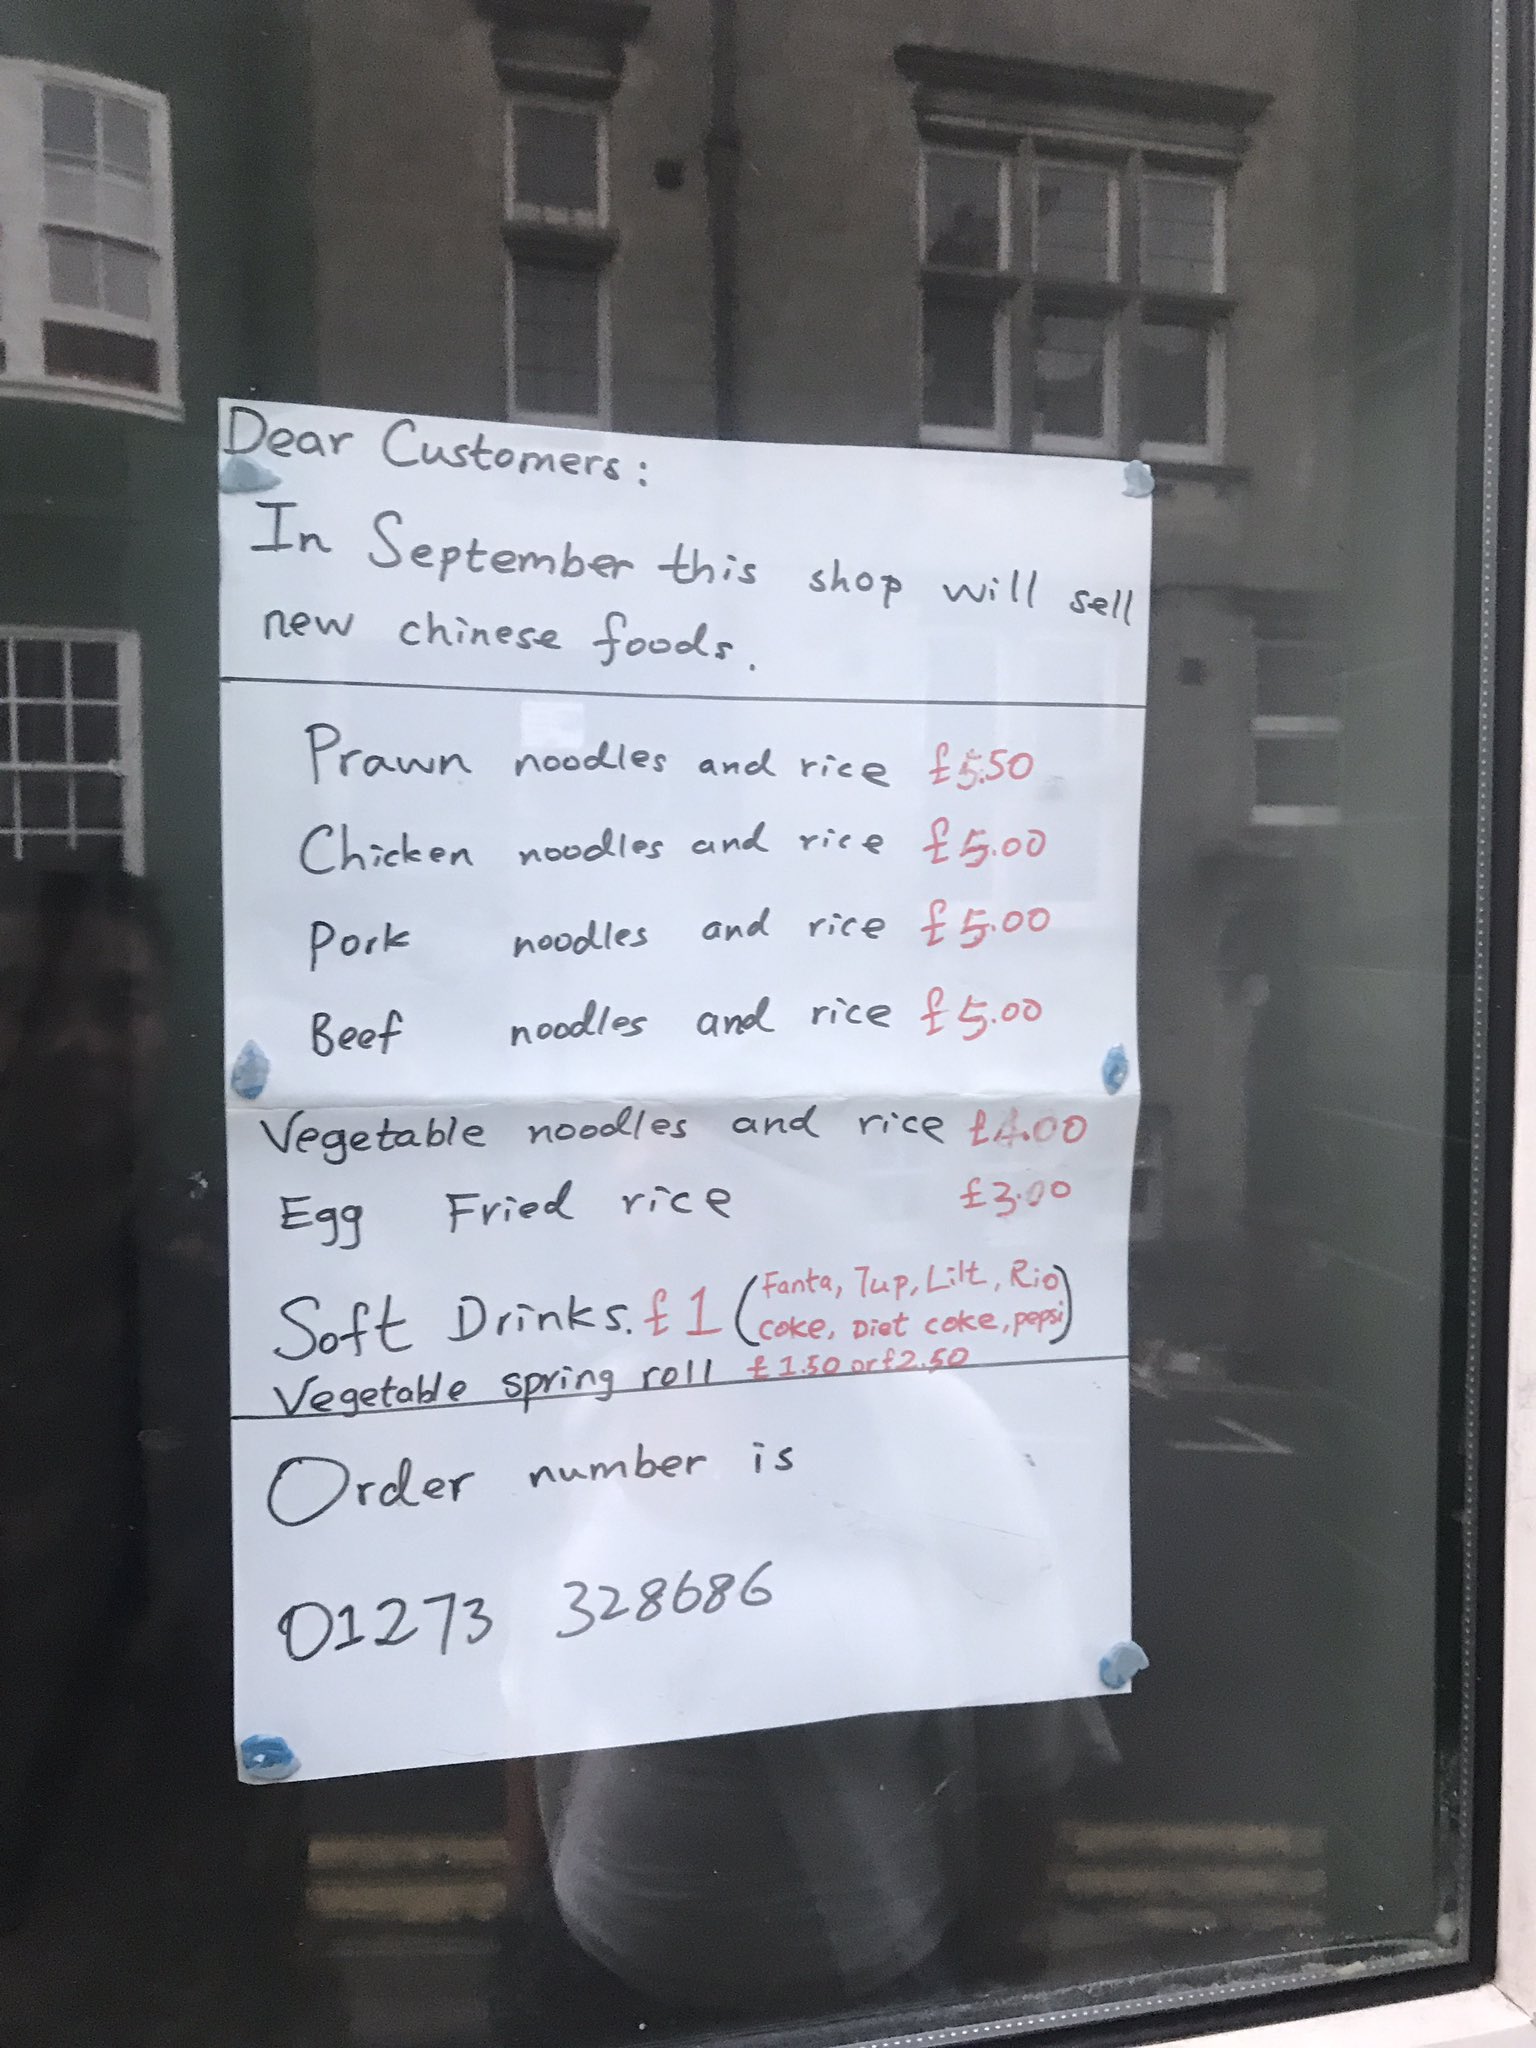 Dear Customers:
In September this shop will sell
new chinese foods.
Prawn noodles and rice £5.50
Chicken noodles and rice £5.00
Pork noodles and rice £5.00
Beef noodles and rice £5.00
Vegetable noodles and rice £4.00
Egg Fried rice £3.00
Soft Drinks. £1 (Fanta, 7up, Lilt, Rio
coke, Diet coke, pepsi)
Vegetable spring roll £1.50 or £2.50
Order number is
01273 328686